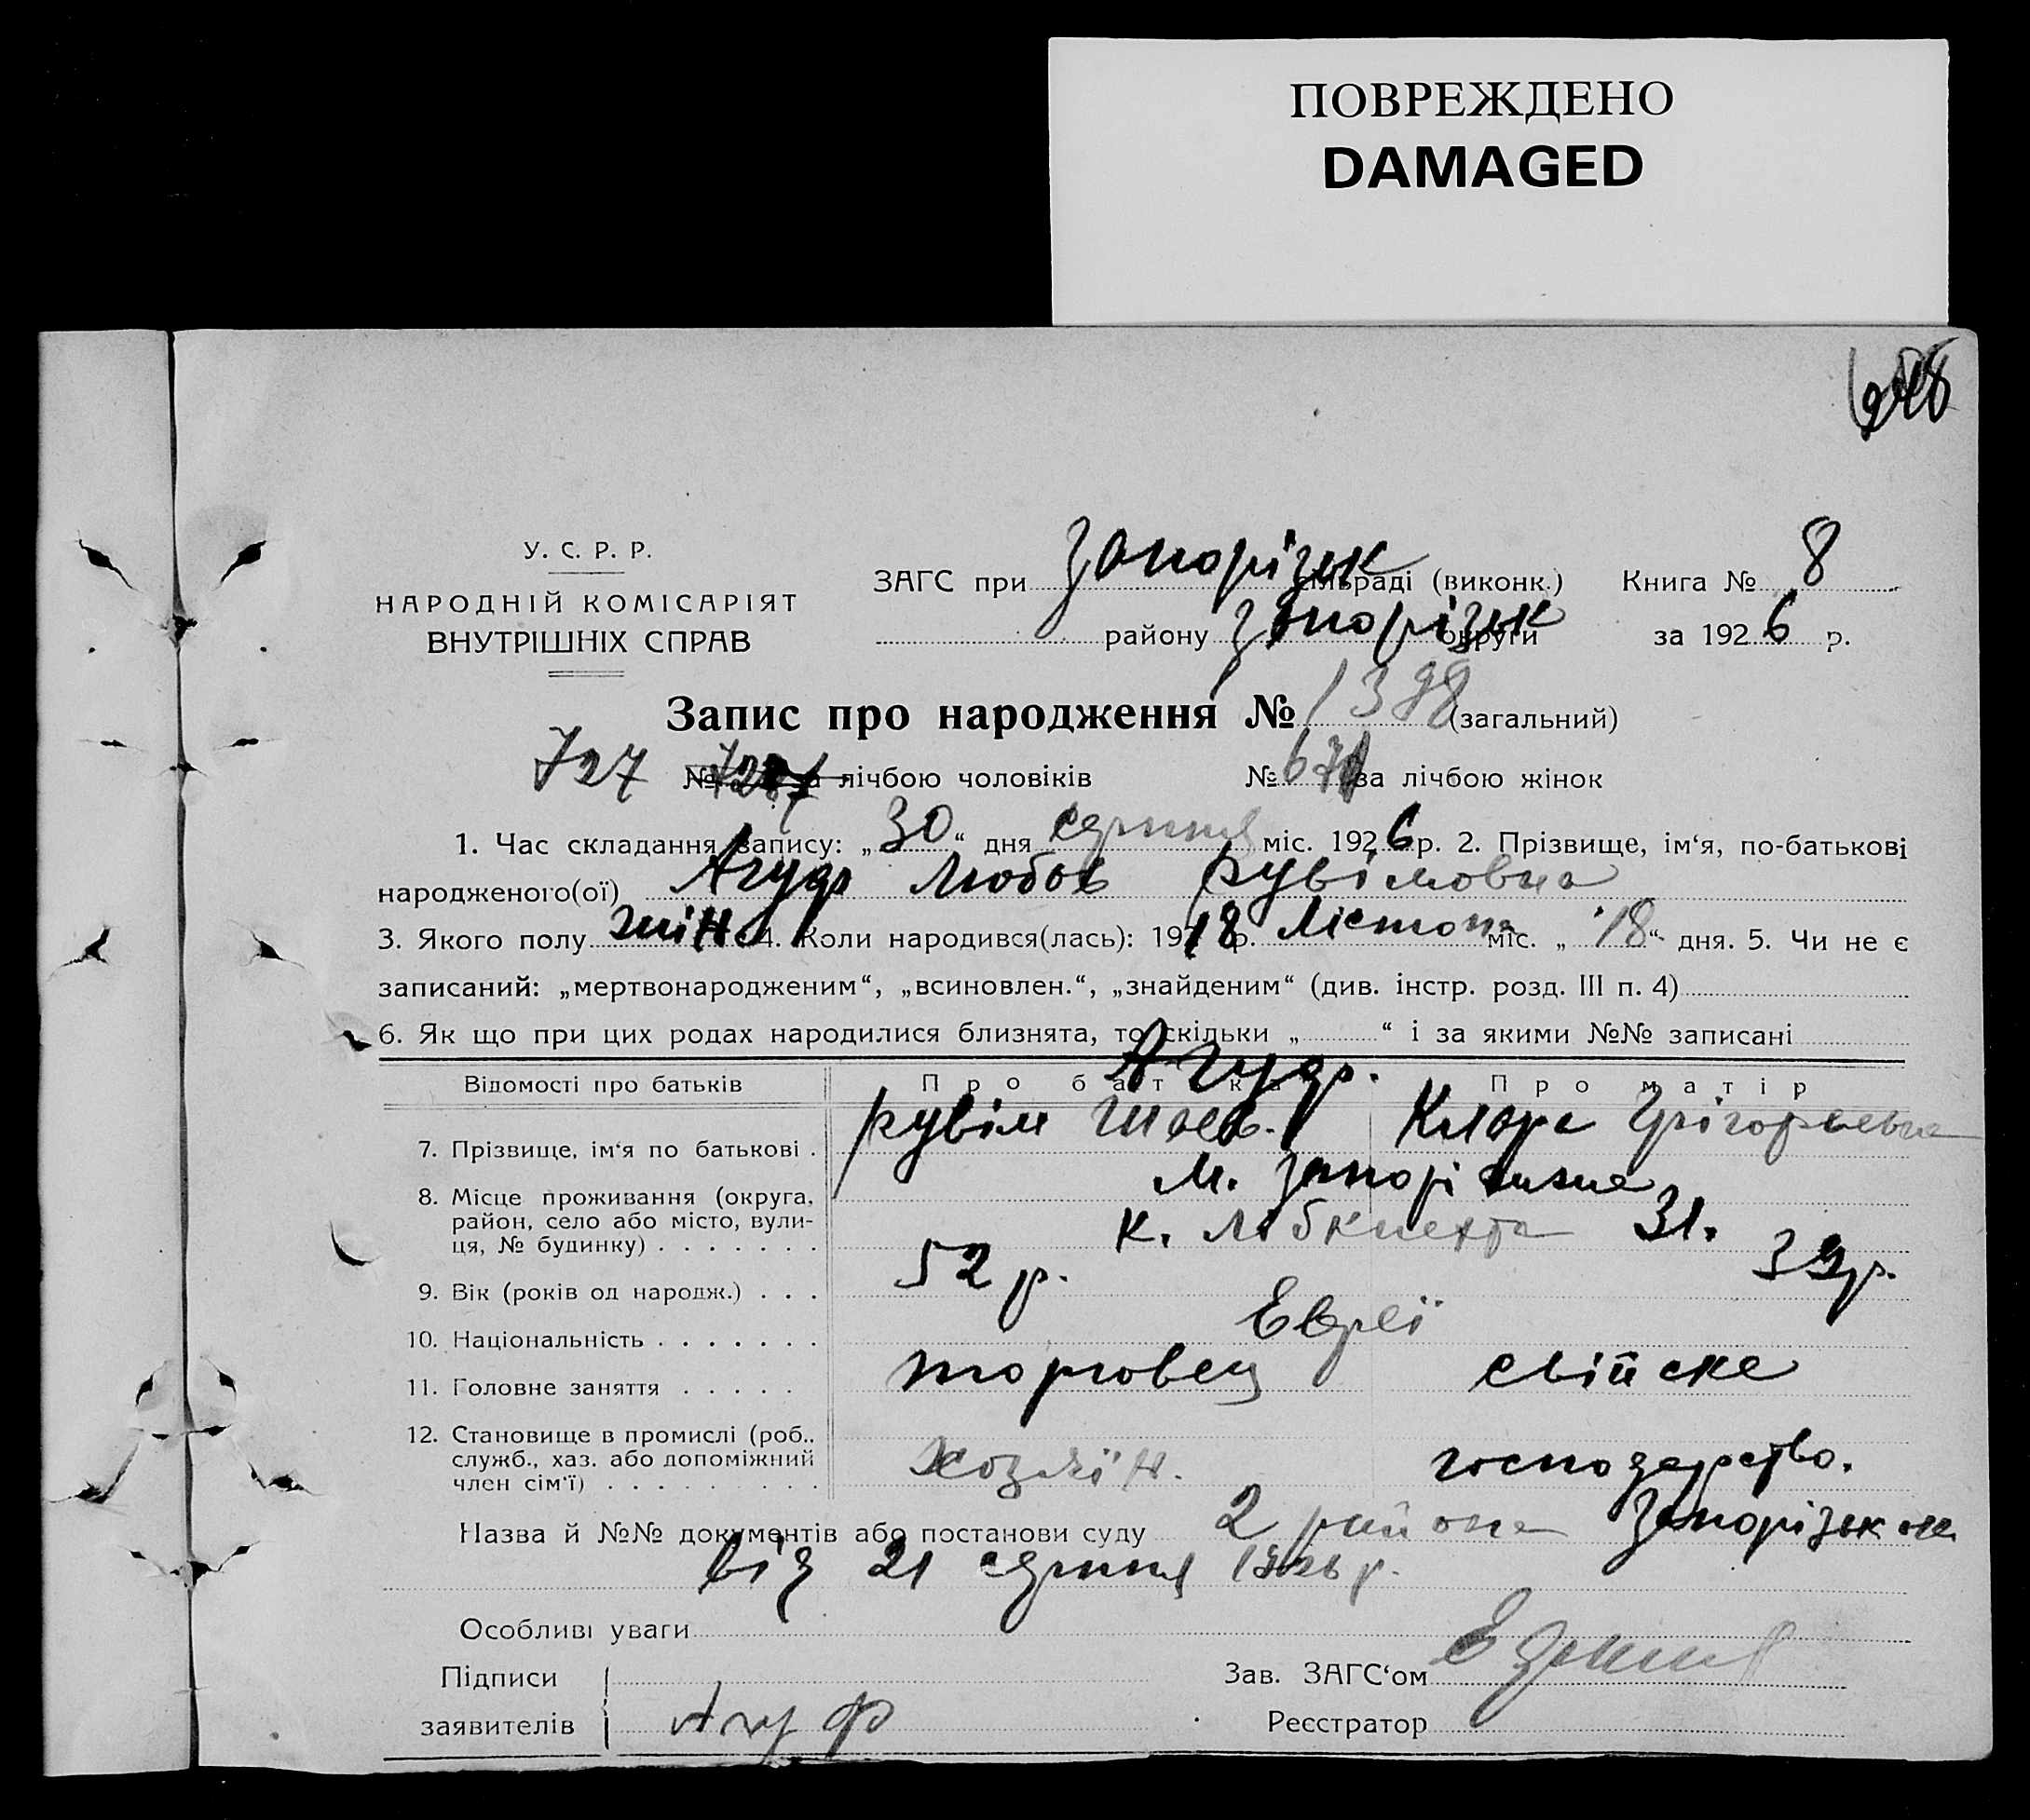 ПОВРЕЖДЕНО
DAMAGED
У. С. Р. Р.
НАРОДНІЙ КОМІСАРІЯТ
ВНУТРІШНІХ СПРАВ
ЗАГС при Запорізьк сільраді (виконк.) Книга № 8
району Запорізьк округи за 1926 р.
Запис про народження № 1398 (загальний)
727 № за лічбою чоловіків № за лічбою жінок
1. Час складання запису: „30“ дня серпня міс. 1926 р. 2. Прізвище, ім‘я, по-батькові
народженого(ої) Любов Рувімовна
3. Якого полу жін 4. Коли народився(лась): 1918 р. Лістопа міс. „18“ дня. 5. Чи не є
записаний: „мертвонародженим“, „всиновлен.“, „знайденим“ (див. інстр. розд. III п. 4)
6. Як що при цих родах народилися близнята, то скільки „ “ і за якими №№ записані
Відомості про батьків Про батька Про матір
7. Прізвище, ім‘я по батькові . Рувім Клара Грігорьевна
8. Місце проживання (округа, м. Запоріжжа
район, село або місто, вули-
ця, № будинку) . . . . . . . К. Лібкнехта 31.
9. Вік (років од народж.) . . . 52 р. 39 р.
10. Національність . . . . . . . Евреї
11. Головне заняття . . . . . торговец свійске
12. Становище в промислі (роб..
служб., хаз. або допоміжний хозяїн. господарство.
член сім‘ї) . . . . . . . . .
Назва й №№ документів або постанови суду 2 района
від 21 серпня 1926 р.
Особливі уваги
Підписи Зав. ЗАГС‘ом
заявителів Реєстратор